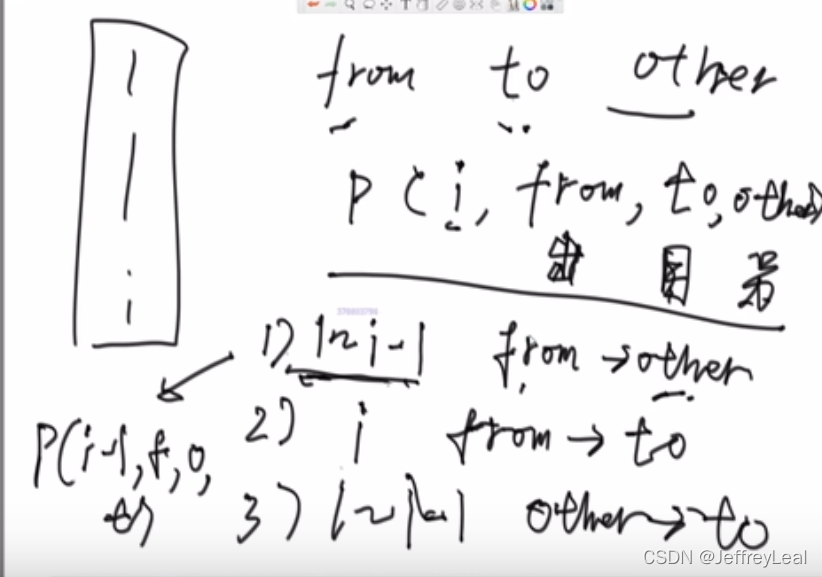 from to other
P(i, from, to, other)
1) 1~i-1 from → other
2) i from → to
P(i-1, f, o, t)
3) 1~i-1 other → to
CSDN @JeffreyLeal